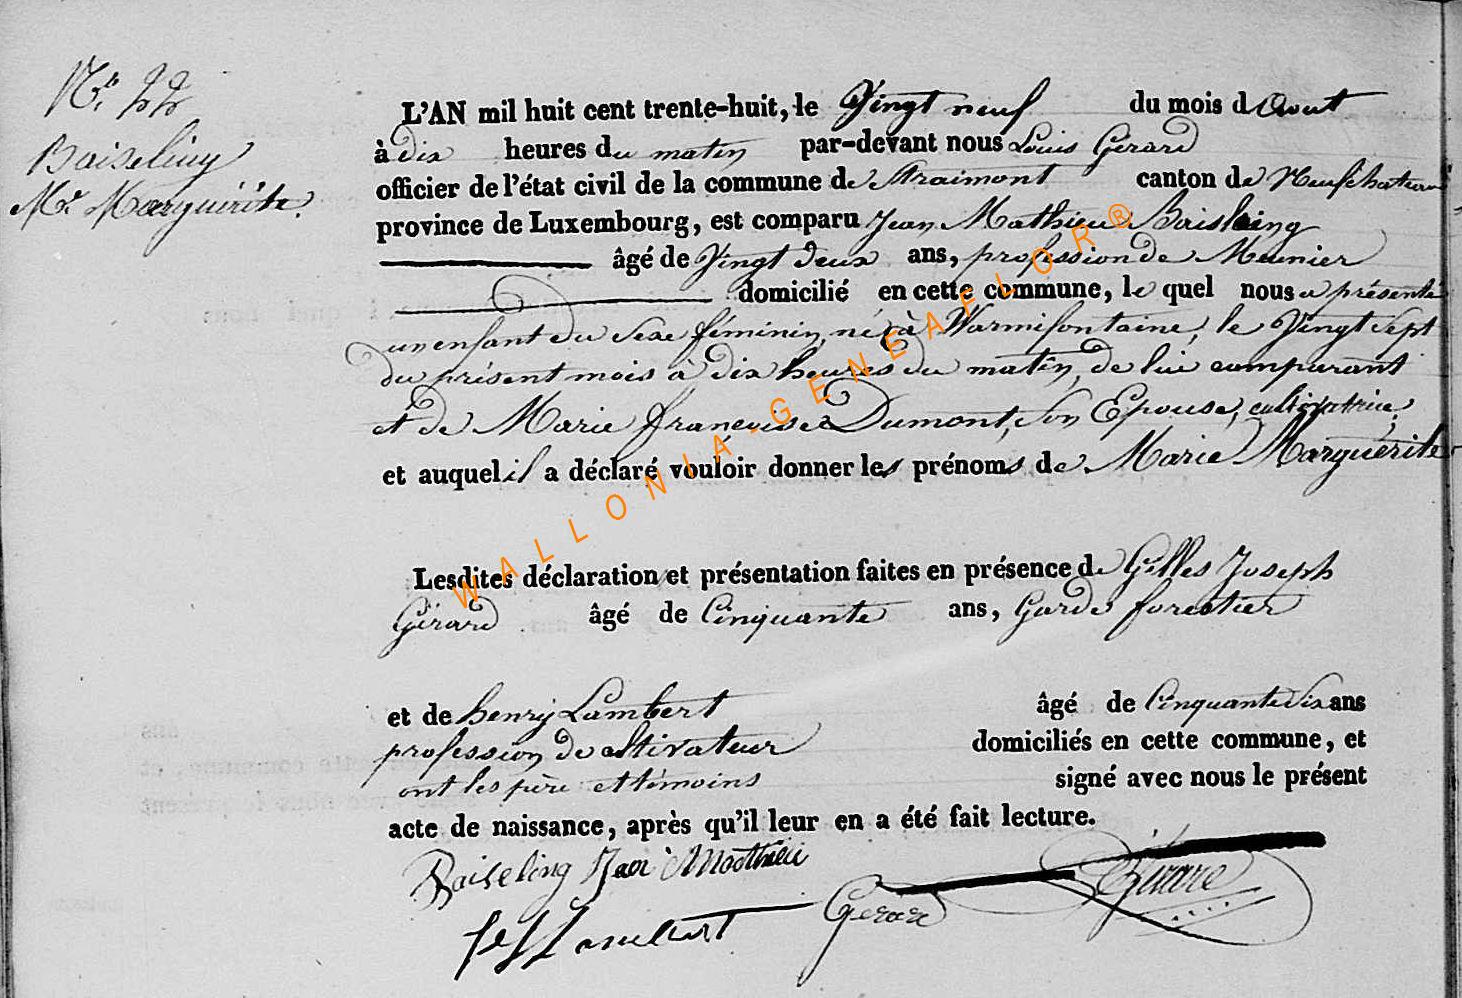 Baiseling
Me. Marguérite.
L'AN mil huit cent trente-huit, le Vingt neuf du mois d Aout
à dix heures du matin par-devant nous Louis Gérard
officier de l'état civil de la commune de Straimont canton de Neufchateau
province de Luxembourg, est comparu Jean Mathieu Baiseling
âgé de Vingt deux ans, profession de Meunier
domicilié en cette commune, le quel nous a présenté
un enfant du Sexe féminin, né à Warmifontaine, le Vingt Sept
du présent mois à dix heures du matin, de lui comparant
et de Marie françoise Dumont, Son Epouse, cultivatrice,
et auquel il a déclaré vouloir donner les prénoms de Marie Marguérite
Lesdites déclaration et présentation faites en présence de Gilles Joseph
Gérard âgé de Cinquante ans, Garde forestier
et de henry Lambert âgé de Cinquante Six ans
profession de cultivateur domiciliés en cette commune, et
ont les père et témoins signé avec nous le présent
acte de naissance, après qu'il leur en a été fait lecture.
Baiseling Jean Mathieu
Lambert
Gerard
Gérard
WALLONIA-GENEAFLOR®